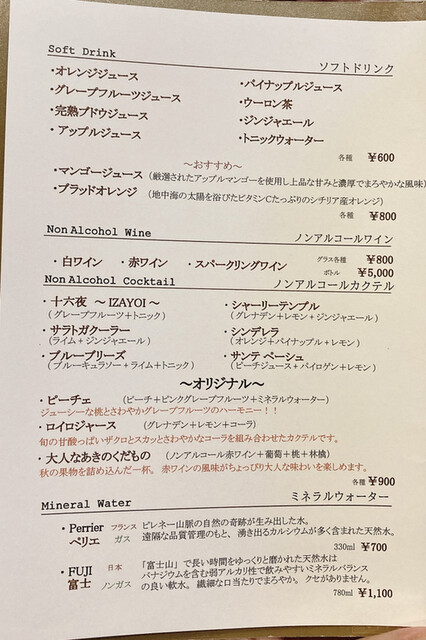 Soft Drink ソフトドリンク
・オレンジジュース ・パイナップルジュース
・グレープフルーツジュース ・ウーロン茶
・完熟ブドウジュース ・ジンジャエール
・アップルジュース ・トニックウォーター
各種 ¥600
～おすすめ～
・マンゴージュース（厳選されたアップルマンゴーを使用し上品な甘みと濃厚でまろやかな風味）
・ブラッドオレンジ（地中海の太陽を浴びたビタミンCたっぷりのシチリア産オレンジ）
各種 ¥800
Non Alcohol Wine ノンアルコールワイン
・白ワイン ・赤ワイン ・スパークリングワイン グラス各種 ¥800
ボトル ¥5,000
Non Alcohol Cocktail ノンアルコールカクテル
・十六夜 ～IZAYOI～ ・シャーリーテンプル
（グレープフルーツ+トニック） （グレナデン+レモン+ジンジャエール）
・サラトガクーラー ・シンデレラ
（ライム+ジンジャエール） （オレンジ+パイナップル+レモン）
・ブルーブリーズ ・サンテ ペーシュ
（ブルーキュラソー+ライム+トニック） （ピーチジュース+パイロゲン+レモン）
～オリジナル～
・ピーチェ （ピーチ+ピンクグレープフルーツ+ミネラルウォーター）
ジューシーな桃とさわやかグレープフルーツのハーモニー！！
・ロイロジャース （グレナデン+レモン+コーラ）
旬の甘酸っぱいザクロとスカッとさわやかなコーラを組み合わせたカクテルです。
・大人なあきのくだもの （ノンアルコール赤ワイン+葡萄+桃+林檎）
秋の果物を詰め込んだ一杯。 赤ワインの風味がちょっぴり大人な味わいを楽しめます。
各種 ¥900
Mineral Water ミネラルウォーター
・Perrier フランス ピレネー山脈の自然の奇跡が生み出した水。
ペリエ ガス 遠隔な品質管理のもと、 湧き出るカルシウムが多く含まれた天然水。
330ml ¥700
・FUJI 日本 「富士山」で長い時間をゆっくりと磨かれた天然水は
富士 ノンガス バナジウムを含む弱アルカリ性で飲みやすいミネラルバランス
の良い軟水。 繊細な口当たりでまろやか。 クセがありません。
780ml ¥1,100